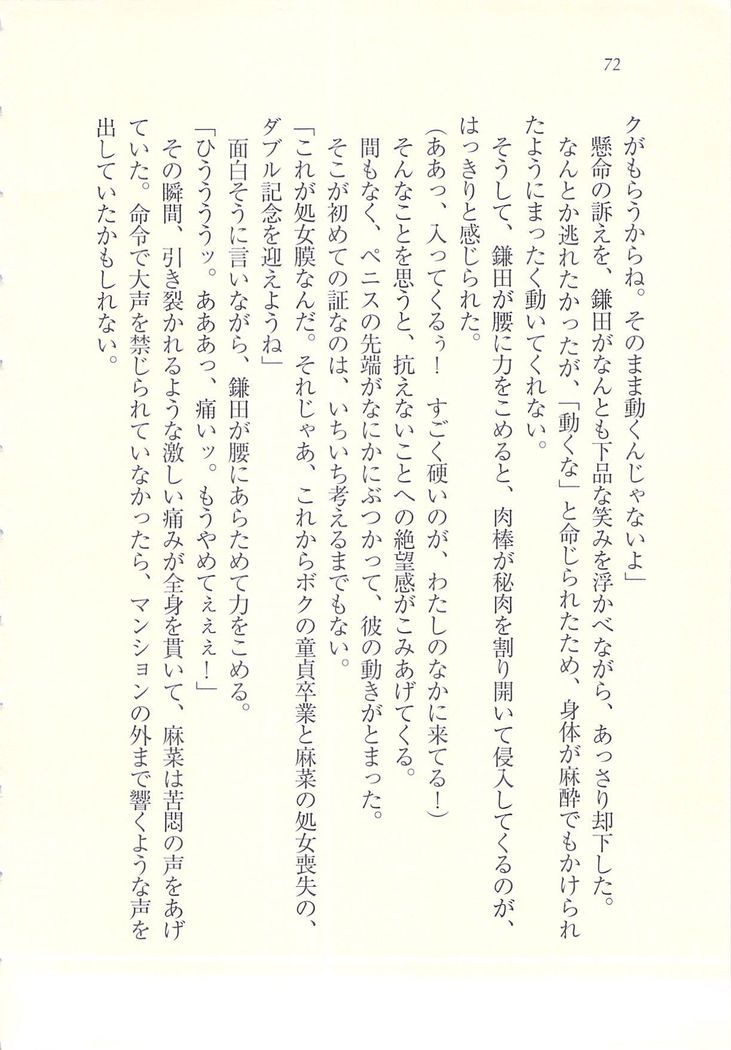 72
クがもらうからね。そのまま動くんじゃないよ」
懸命の訴えを、鎌田がなんとも下品な笑みを浮かべながら、あっさり却下した。
なんとか逃れたかったが、「動くな」と命じられたため、身体が麻酔でもかけられ
たようにまったく動いてくれない。
そうして、鎌田が腰に力をこめると、肉棒が秘肉を割り開いて侵入してくるのが、
はっきりと感じられた。
（ああっ、入ってくるぅ！　すごく硬いのが、わたしのなかに来てる！）
そんなことを思うと、抗えないことへの絶望感がこみあげてくる。
間もなく、ペニスの先端がなにかにぶつかって、彼の動きがとまった。
そこが初めての証なのは、いちいち考えるまでもない。
「これが処女膜なんだ。それじゃあ、これからボクの童貞卒業と麻菜の処女喪失の、
ダブル記念を迎えようね」
面白そうに言いながら、鎌田が腰にあらためて力をこめる。
「ひううううッ。あああっ、痛いッ。もうやめてぇぇぇ！」
その瞬間、引き裂かれるような激しい痛みが全身を貫いて、麻菜は苦悶の声をあげ
ていた。命令で大声を禁じられていなかったら、マンションの外まで響くような声を
出していたかもしれない。